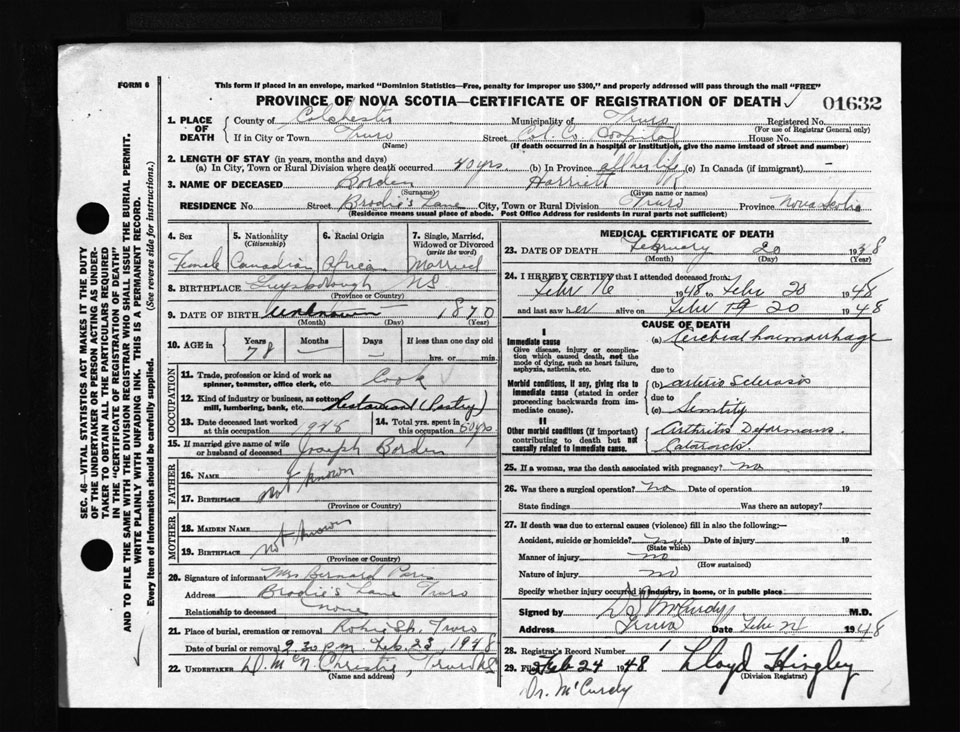 FORM 6
This form if placed in an envelope, marked "Dominion Statistics—Free, penalty for improper use $300," and properly addressed will pass through the mail "FREE"
PROVINCE OF NOVA SCOTIA—CERTIFICATE OF REGISTRATION OF DEATH 01632
1. PLACE OF DEATH County of Colchester Municipality of Truro Registered No.
(For use of Registrar General only)
If in City or Town Truro Street Col. Co. Hospital House No.
(Name) (If death occurred in a hospital or institution, give the name instead of street and number)
2. LENGTH OF STAY (in years, months and days)
(a) In City, Town or Rural Division where death occurred 40 yrs (b) In Province all her life (c) In Canada (if immigrant) —
3. NAME OF DECEASED Borden Harriett
(Surname) (Given name or names)
RESIDENCE No. Street Brodie's Lane City, Town or Rural Division Truro Province Nova Scotia
(Residence means usual place of abode. Post Office Address for residents in rural parts not sufficient)
4. Sex Female
5. Nationality (Citizenship) Canadian
6. Racial Origin African
7. Single, Married, Widowed or Divorced (write the word) Married
8. BIRTHPLACE Guysborough NS
(Province or Country)
9. DATE OF BIRTH Unknown 1870
(Month) (Day) (Year)
10. AGE in Years 78 Months — Days — If less than one day old hrs. or min.
OCCUPATION
11. Trade, profession or kind of work as spinner, teamster, office clerk, etc. Cook
12. Kind of industry or business, as cotton mill, lumbering, bank, etc. Restaurant (Pastry)
13. Date deceased last worked at this occupation
14. Total yrs. spent in this occupation 50 yrs
15. If married give name of wife or husband of deceased Joseph Borden
FATHER
16. NAME
17. BIRTHPLACE not known
(Province or Country)
MOTHER
18. MAIDEN NAME
19. BIRTHPLACE not known
(Province or Country)
20. Signature of informant Mrs Bernard
Address Brodie's Lane Truro
Relationship to deceased none
21. Place of burial, cremation or removal Robie St. Truro
Date of burial or removal 2.30 p.m. Feb. 23, 1948
22. UNDERTAKER D. McN Christie, Truro NS
(Name and address)
MEDICAL CERTIFICATE OF DEATH
23. DATE OF DEATH February 20 1948
(Month) (Day) (Year)
24. I HEREBY CERTIFY that I attended deceased from:
Febr 16 1948 to Febr 20 1948
and last saw her alive on Febr 20 1948
CAUSE OF DEATH
I
Immediate cause
Give disease, injury or complication which caused death, not the mode of dying, such as heart failure, asphyxia, asthenia, etc.
(a) Cerebral haemorrhage
due to
Morbid conditions, if any, giving rise to immediate cause (stated in order proceeding backwards from immediate cause).
(b) arterio Sclerosis
due to
(c) Senility
II
Other morbid conditions (if important) contributing to death but not causally related to immediate cause.
Arthritis Deformans.
Cataracts
25. If a woman, was the death associated with pregnancy? no
26. Was there a surgical operation? no Date of operation 19
State findings Was there an autopsy?
27. If death was due to external causes (violence) fill in also the following:—
Accident, suicide or homicide? no Date of injury 19
(State which)
Manner of injury no
(How sustained)
Nature of injury no
Specify whether injury occurred in industry, in home, or in public place
Signed by McCurdy M.D.
Address Truro Date Febr 1948
28. Registrar's Record Number 1
29. Filed Feb 24 1948 Lloyd Hingley
(Division Registrar)
Dr. McCurdy
SEC. 46—VITAL STATISTICS ACT MAKES IT THE DUTY
OF THE UNDERTAKER OR PERSON ACTING AS UNDER-
TAKER TO OBTAIN ALL THE PARTICULARS REQUIRED
IN THE "CERTIFICATE OF REGISTRATION OF DEATH"
AND TO FILE THE SAME WITH THE DIVISION REGISTRAR WHO SHALL ISSUE THE BURIAL PERMIT.
WRITE PLAINLY WITH UNFADING INK. THIS IS A PERMANENT RECORD.
Every item of Information should be carefully supplied. (See reverse side for instructions.)